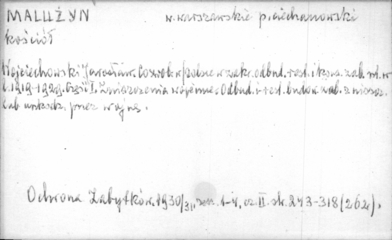 MALUŻYN w. warszawskie p. ciechanowski
kościół
Wojciechowski Jarosław. Co zrobiono w zakr. odbud. rest. i kons. zab. szt. w
l. 1919-1929. Część I. Zniszczenia wojenne. Odbud. i rest. budow. zab. zniszcz.
lub uszkodz. przez wojnę.
Ochrona Zabytków. 1930/31, zesz. 1-4, cz. II. str. 243-318 (262).